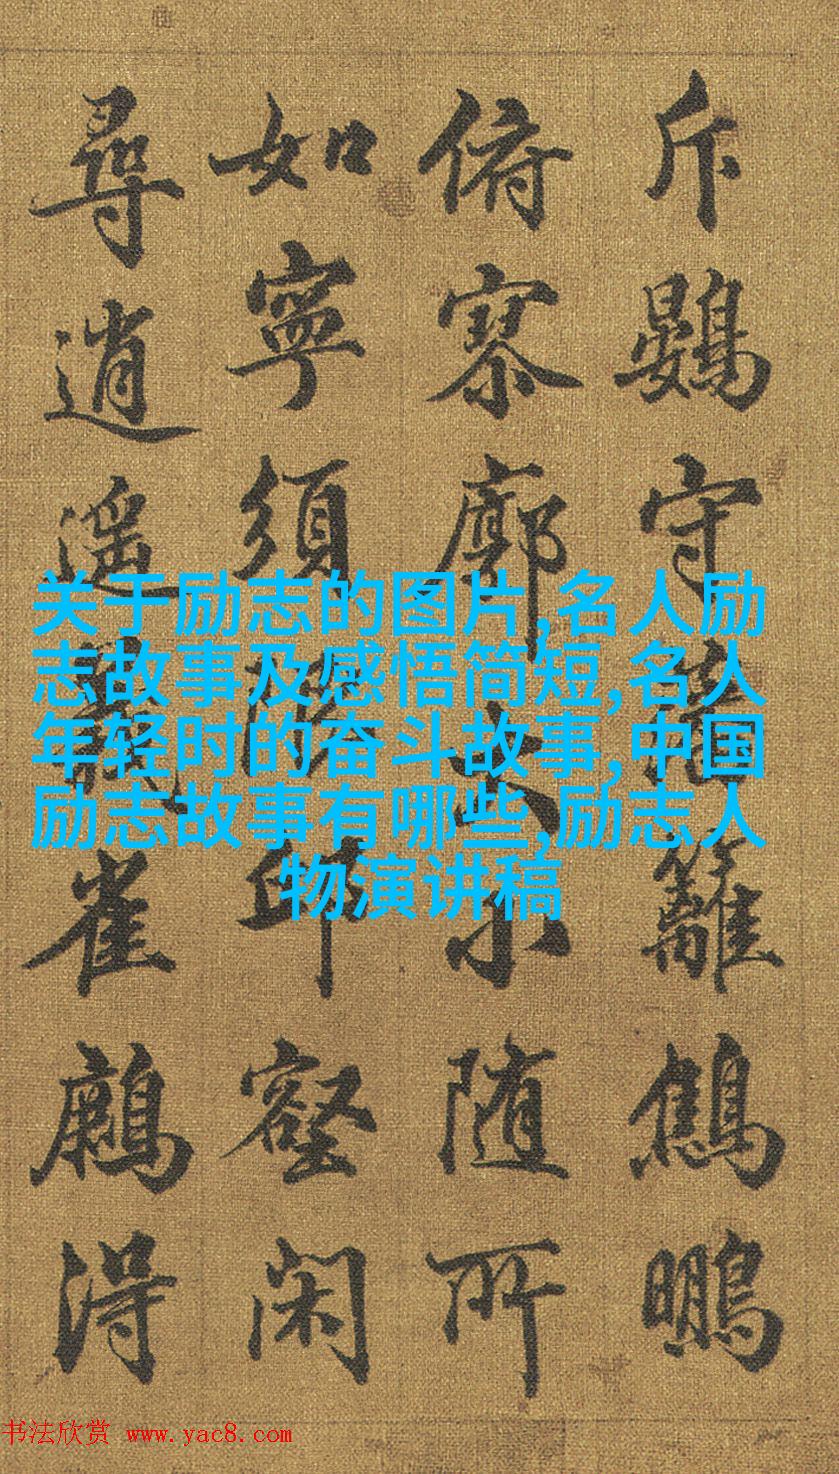 斥鷃守籬鷦䳟
俯寥廓大小随所
如寧須邱壑闲
尋逍遥雀得
关于励志的图片,名人励
志故事及感悟简短,名人
年轻时的奋斗故事,中国
励志故事有哪些,励志人
物演讲稿
书法欣赏 www.yac8.com